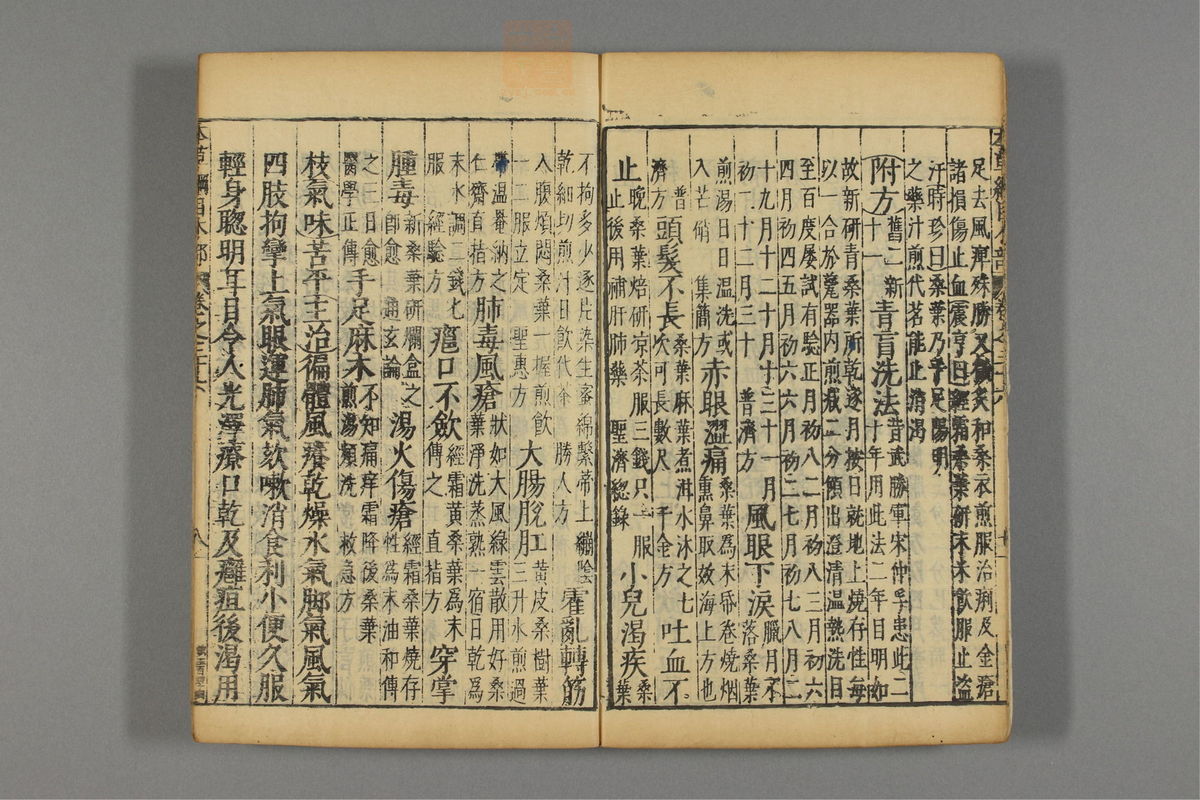 足去風痺殊勝又微炙和桑衣煎服治痢及金瘡
諸損傷止血震亨曰經霜桑葉研末米飲服止盜
汗時珍曰桑葉乃手足陽明
之藥汁煎代茗能止消渴
附方舊二新十一青盲洗法昔武勝軍宋仲孚患此二十年用此法二年目明如
故新研青桑葉所乾逐月按日就地上燒存性每
以一合於甆器內煎減二分傾出澄清溫熱洗目
至百度屢試有驗正月初八二月初八三月初六
四月初四五月初六六月初二七月初七八月二
十九月十二十月十三十一月初二十二月三十 普濟方風眼下淚臘月不落桑葉
煎湯日日溫洗或入芒硝 集簡方赤眼澀痛桑葉為末帋卷燒烟熏鼻取效海上方也
普濟方頭髮不長桑葉麻葉煮泔水沐之七次可長數尺 千金方吐血不
止晚桑葉焙研凉茶服三錢只一服止後用補肝肺藥 聖濟總錄小兒渴疾桑葉
不拘多少逐片染生蜜綿繫蒂上繃陰乾細切煎汁日飲代茶 勝人方霍亂轉筋
入腹煩悶桑葉一握煎飲一二服立定 聖惠方大腸脫肛黃皮桑樹葉三升水煎過
帶溫罨納之仁齋直指方肺毒風瘡狀如大風綠雲散用好桑葉淨洗蒸熟一宿日乾為
末水調二錢匕服 經驗方癰口不斂經霜黃桑葉為末傅之 直指方穿掌
腫毒新桑葉研爛盦之即愈 通玄論湯火傷瘡經霜桑葉燒存性為末油和傅
之三日愈醫學正傳手足麻木不知痛痒霜降後桑葉煎湯頻洗 救急方
枝氣味苦平主治徧體風癢乾燥水氣脚氣風氣
四肢拘攣上氣眼運肺氣欬嗽消食利小便久服
輕身聰明耳目令人光澤療口乾及癰疽後渴用